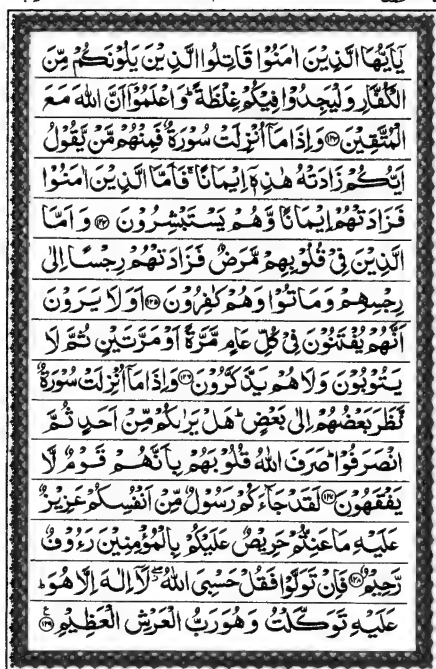 يٰٓاَيُّهَا الَّذِيْنَ اٰمَنُوْا قَاتِلُوا الَّذِيْنَ يَلُوْنَكُمْ مِّنَ
الْكُفَّارِ وَلْيَجِدُوْا فِيْكُمْ غِلْظَةً ؕ وَاعْلَمُوْۤا اَنَّ اللّٰهَ مَعَ
الْمُتَّقِيْنَ ۝۱۲۳ وَاِذَا مَاۤ اُنْزِلَتْ سُوْرَةٌ فَمِنْهُمْ مَّنْ يَّقُوْلُ
اَيُّكُمْ زَادَتْهُ هٰذِهٖۤ اِيْمَانًا ۚ فَاَمَّا الَّذِيْنَ اٰمَنُوْا
فَزَادَتْهُمْ اِيْمَانًا وَّهُمْ يَسْتَبْشِرُوْنَ ۝۱۲۴ وَاَمَّا
الَّذِيْنَ فِيْ قُلُوْبِهِمْ مَّرَضٌ فَزَادَتْهُمْ رِجْسًا اِلٰى
رِجْسِهِمْ وَمَاتُوْا وَهُمْ كٰفِرُوْنَ ۝۱۲۵ اَوَلَا يَرَوْنَ
اَنَّهُمْ يُفْتَنُوْنَ فِيْ كُلِّ عَامٍ مَّرَّةً اَوْ مَرَّتَيْنِ ثُمَّ لَا
يَتُوْبُوْنَ وَلَا هُمْ يَذَّكَّرُوْنَ ۝۱۲۶ وَاِذَا مَاۤ اُنْزِلَتْ سُوْرَةٌ
نَّظَرَ بَعْضُهُمْ اِلٰى بَعْضٍ ؕ هَلْ يَرٰىكُمْ مِّنْ اَحَدٍ ثُمَّ
انْصَرَفُوْا ؕ صَرَفَ اللّٰهُ قُلُوْبَهُمْ بِاَنَّهُمْ قَوْمٌ لَّا
يَفْقَهُوْنَ ۝۱۲۷ لَقَدْ جَآءَكُمْ رَسُوْلٌ مِّنْ اَنْفُسِكُمْ عَزِيْزٌ
عَلَيْهِ مَا عَنِتُّمْ حَرِيْصٌ عَلَيْكُمْ بِالْمُؤْمِنِيْنَ رَءُوْفٌ
رَّحِيْمٌ ۝۱۲۸ فَاِنْ تَوَلَّوْا فَقُلْ حَسْبِيَ اللّٰهُ ۖ لَاۤ اِلٰهَ اِلَّا هُوَ ؕ
عَلَيْهِ تَوَكَّلْتُ وَهُوَ رَبُّ الْعَرْشِ الْعَظِيْمِ ۝۱۲۹ ع